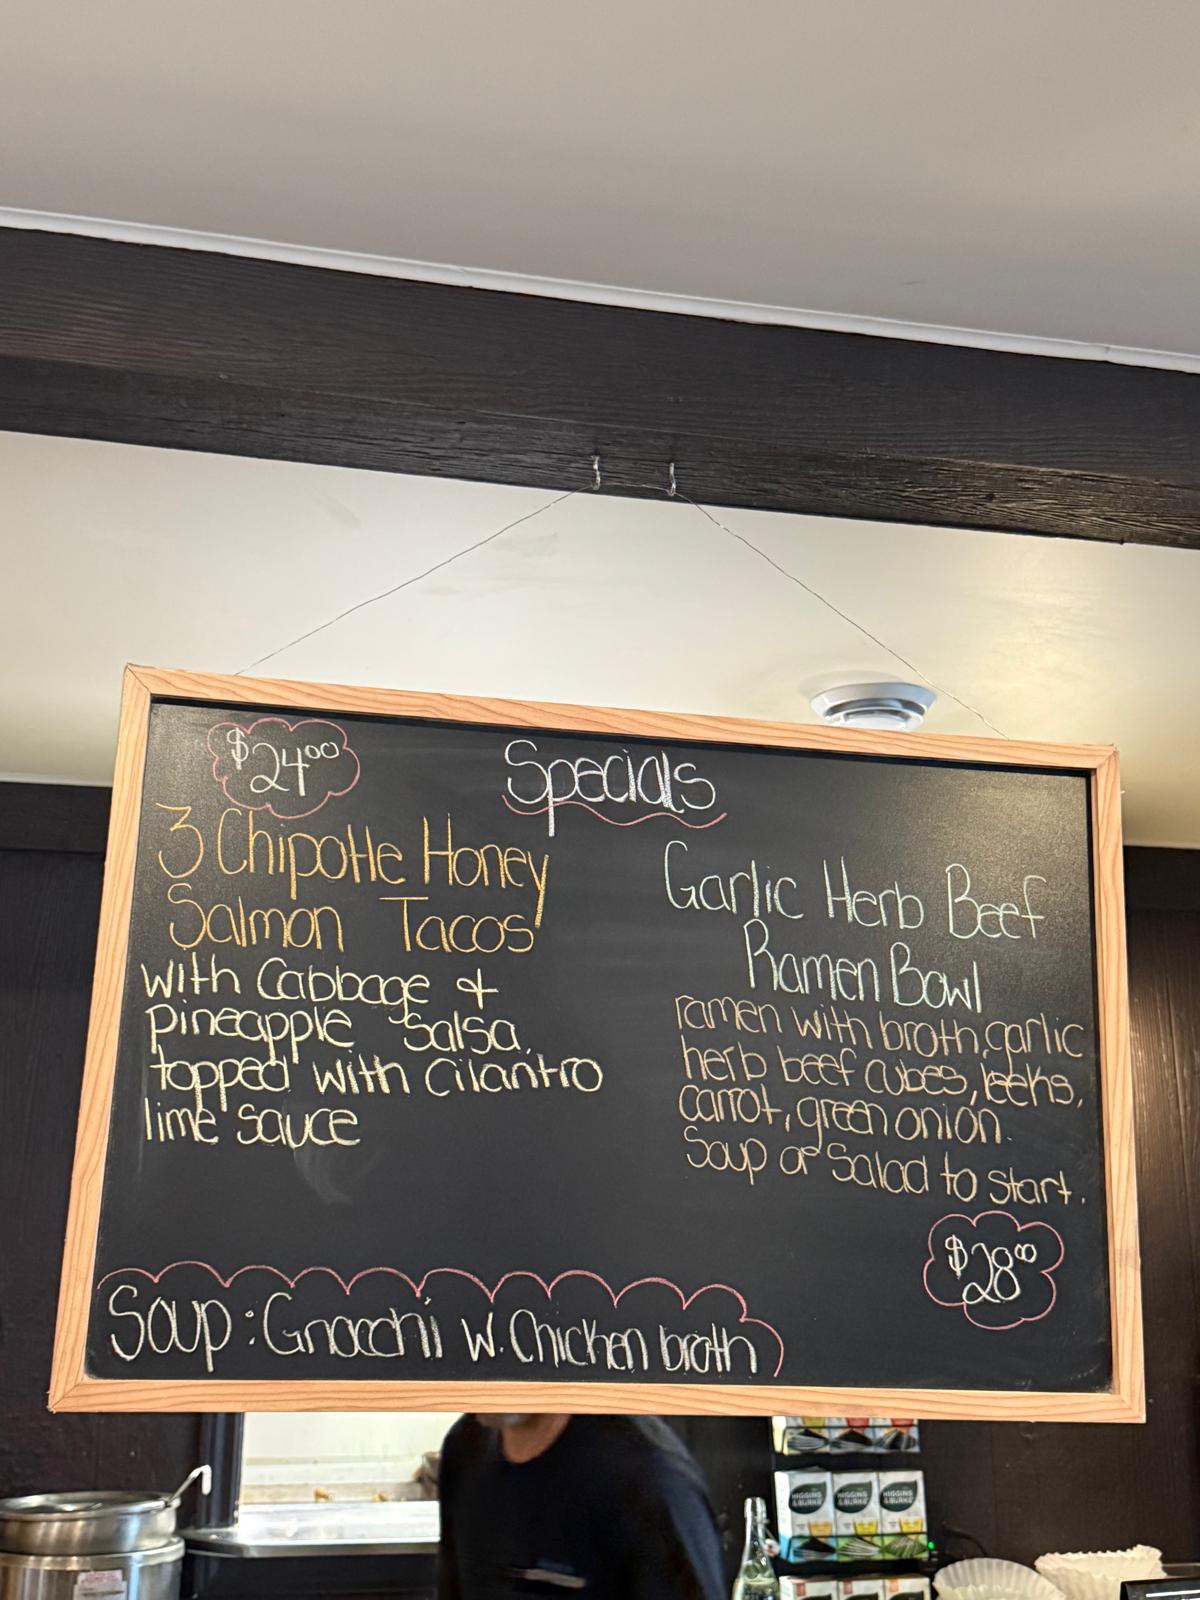 $24⁰⁰
Specials
3 Chipotle Honey
Salmon Tacos
with Cabbage &
pineapple Salsa,
topped with Cilantro
lime sauce
Garlic Herb Beef
Ramen Bowl
ramen with broth, garlic
herb beef cubes, leeks,
carrot, green onion.
Soup or Salad to start.
$28⁰⁰
Soup: Gnocchi w. Chicken broth
HIGGINS
& BURKE
HIGGINS
& BURKE
HIGGINS
& BURKE